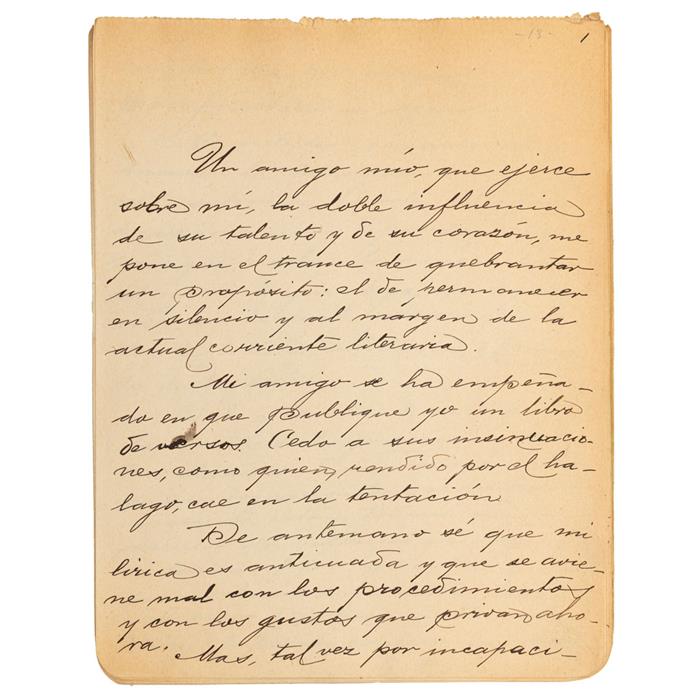 -13-
1
Un amigo mío, que ejerce
sobre mí, la doble influencia
de su talento y de su corazón, me
pone en el trance de quebrantar
un propósito: el de permanecer
en silencio y al margen de la
actual corriente literaria.
Mi amigo se ha empeña-
do en que publique yo un libro
de versos. Cedo a sus insinuacio-
nes, como quien, rendido por el ha-
lago, cae en la tentación.
De antemano sé que mi
lírica es anticuada y que se avie-
ne mal con los procedimientos
y con los gustos que privan aho-
ra. Mas, tal vez por incapaci-